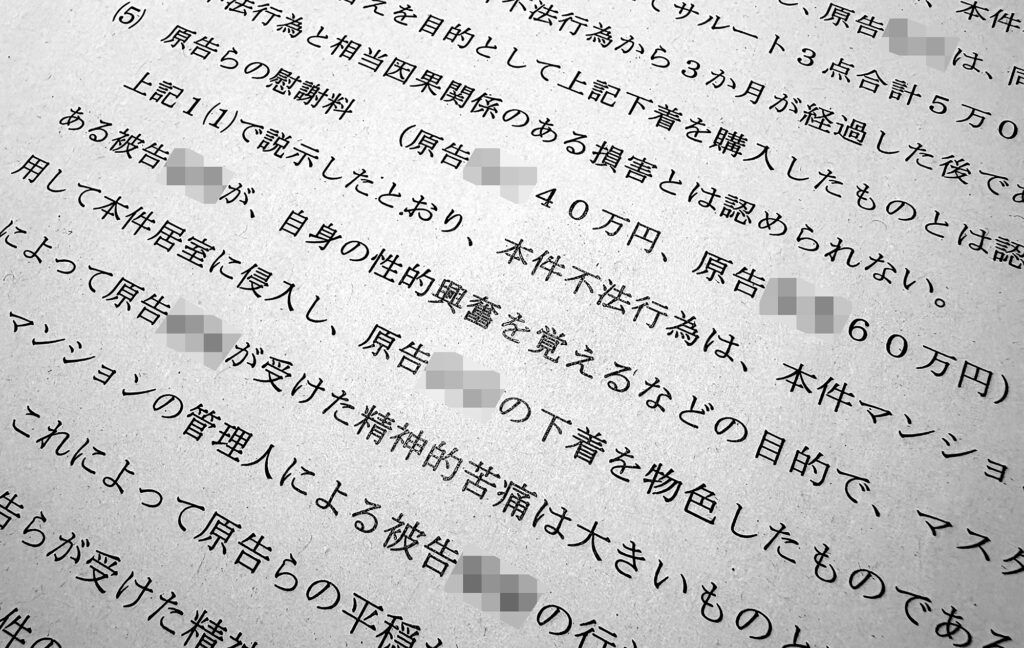 、原告 は、同
てサルート３点合計５万０
不法行為から３か月が経過した後であ
えを目的として上記下着を購入したものとは認
法行為と相当因果関係のある損害とは認められない。
(5) 原告らの慰謝料 （原告 ４０万円、原告 ６０万円）
上記１(1)で説示したとおり、本件不法行為は、本件マンショ
ある被告 が、自身の性的興奮を覚えるなどの目的で、マスタ
用して本件居室に侵入し、原告 の下着を物色したものである
によって原告 が受けた精神的苦痛は大きいものと
マンションの管理人による被告 の行
これによって原告らの平穏
告らが受けた精神
件の